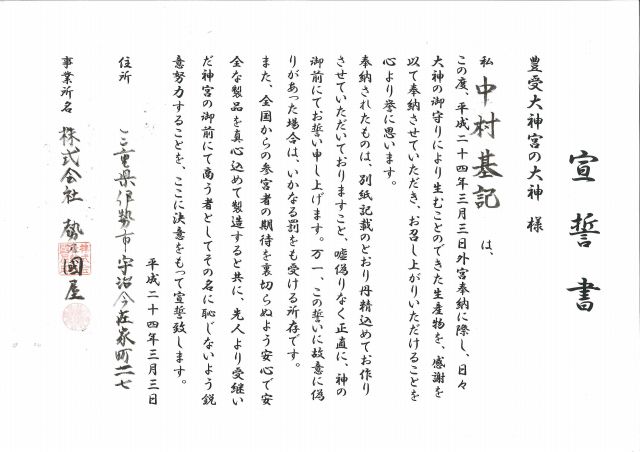 宣誓書
豊受大神宮の大神 様
私 中村基記 は、
この度、平成二十四年三月三日外宮奉納に際し、日々
大神の御守りにより生むことのできた生産物を、感謝を
以て奉納させていただき、お召し上がりいただけることを
心より誉に思います。
奉納されたものは、別紙記載のとおり丹精込めてお作り
させていただいておりますこと、嘘偽りなく正直に、神の
御前にてお誓い申し上げます。万一、この誓いに故意に偽
りがあった場合は、いかなる罰をも受ける所存です。
また、全国からの参宮者の期待を裏切らぬよう安心で安
全な製品を真心込めて製造すると共に、先人より受継い
だ神宮の御前にて商う者としてその名に恥じないよう鋭
意努力することを、ここに決意をもって宣誓致します。
平成二十四年三月三日
住所 三重県伊勢市宇治今在家町二七
事業所名 株式会社 勢乃國屋